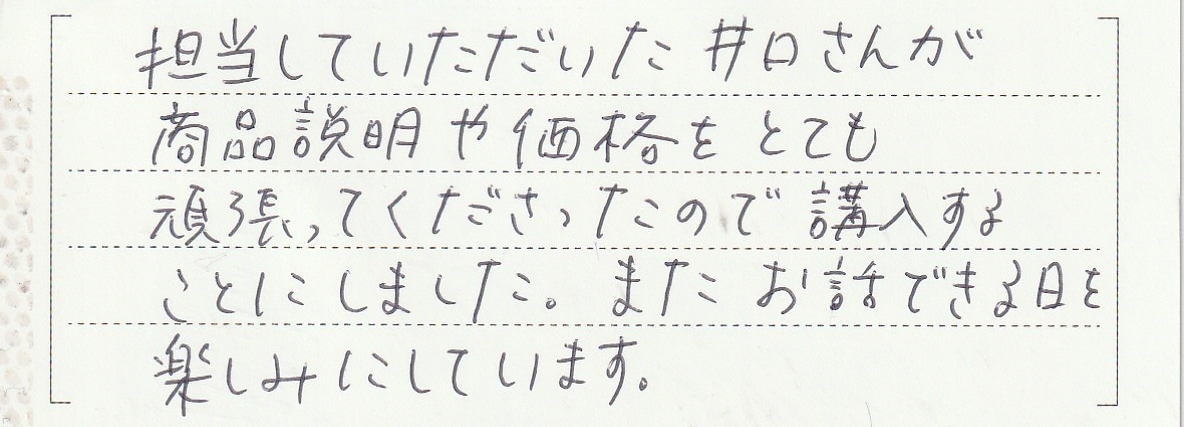 担当していただいた井口さんが
商品説明や価格をとても
頑張ってくださったので講入する
ことにしました。またお話できる日を
楽しみにしています。